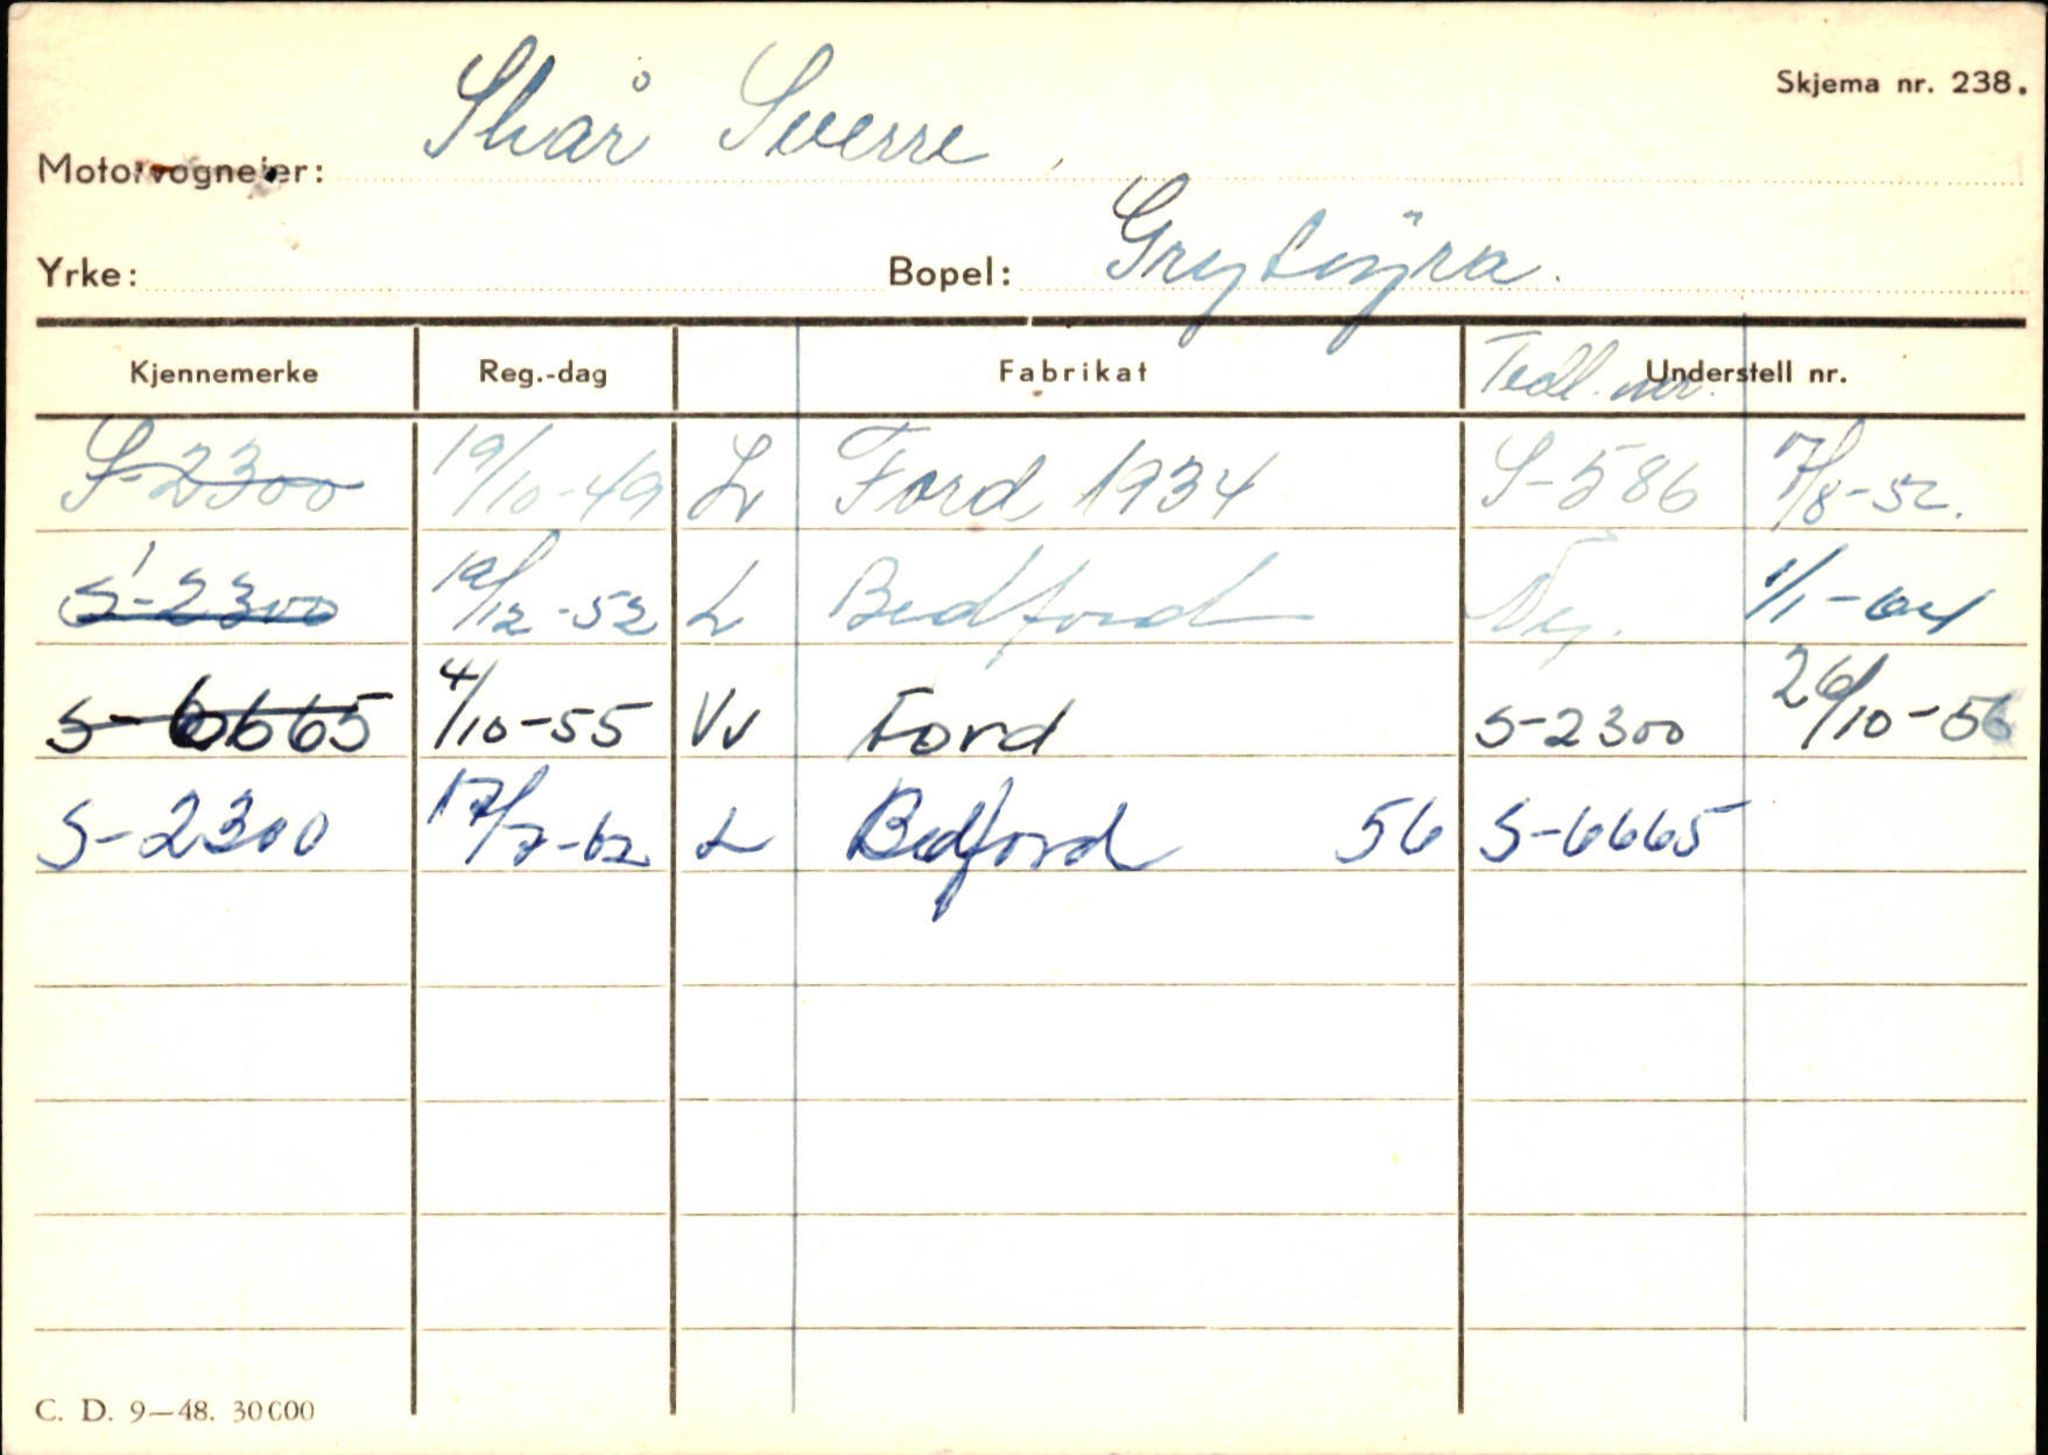 Skjema nr. 238.
Motorvogneier: Skår Sverre
Yrke: Bopel: Grytöyra.
Kjennemerke Reg.-dag Fabrikat Tedl. nr. Understell nr.
S-2300 19/10-49 Lv Ford 1934 S-586 7/8-52.
S-2300 19/12-52 L Bedford Ny. 1/1-64
S-6665 4/10-55 Vv Ford S-2300 26/10-56
S-2300 17/7-62 L Bedford 56 S-6665
C. D. 9—48. 30000